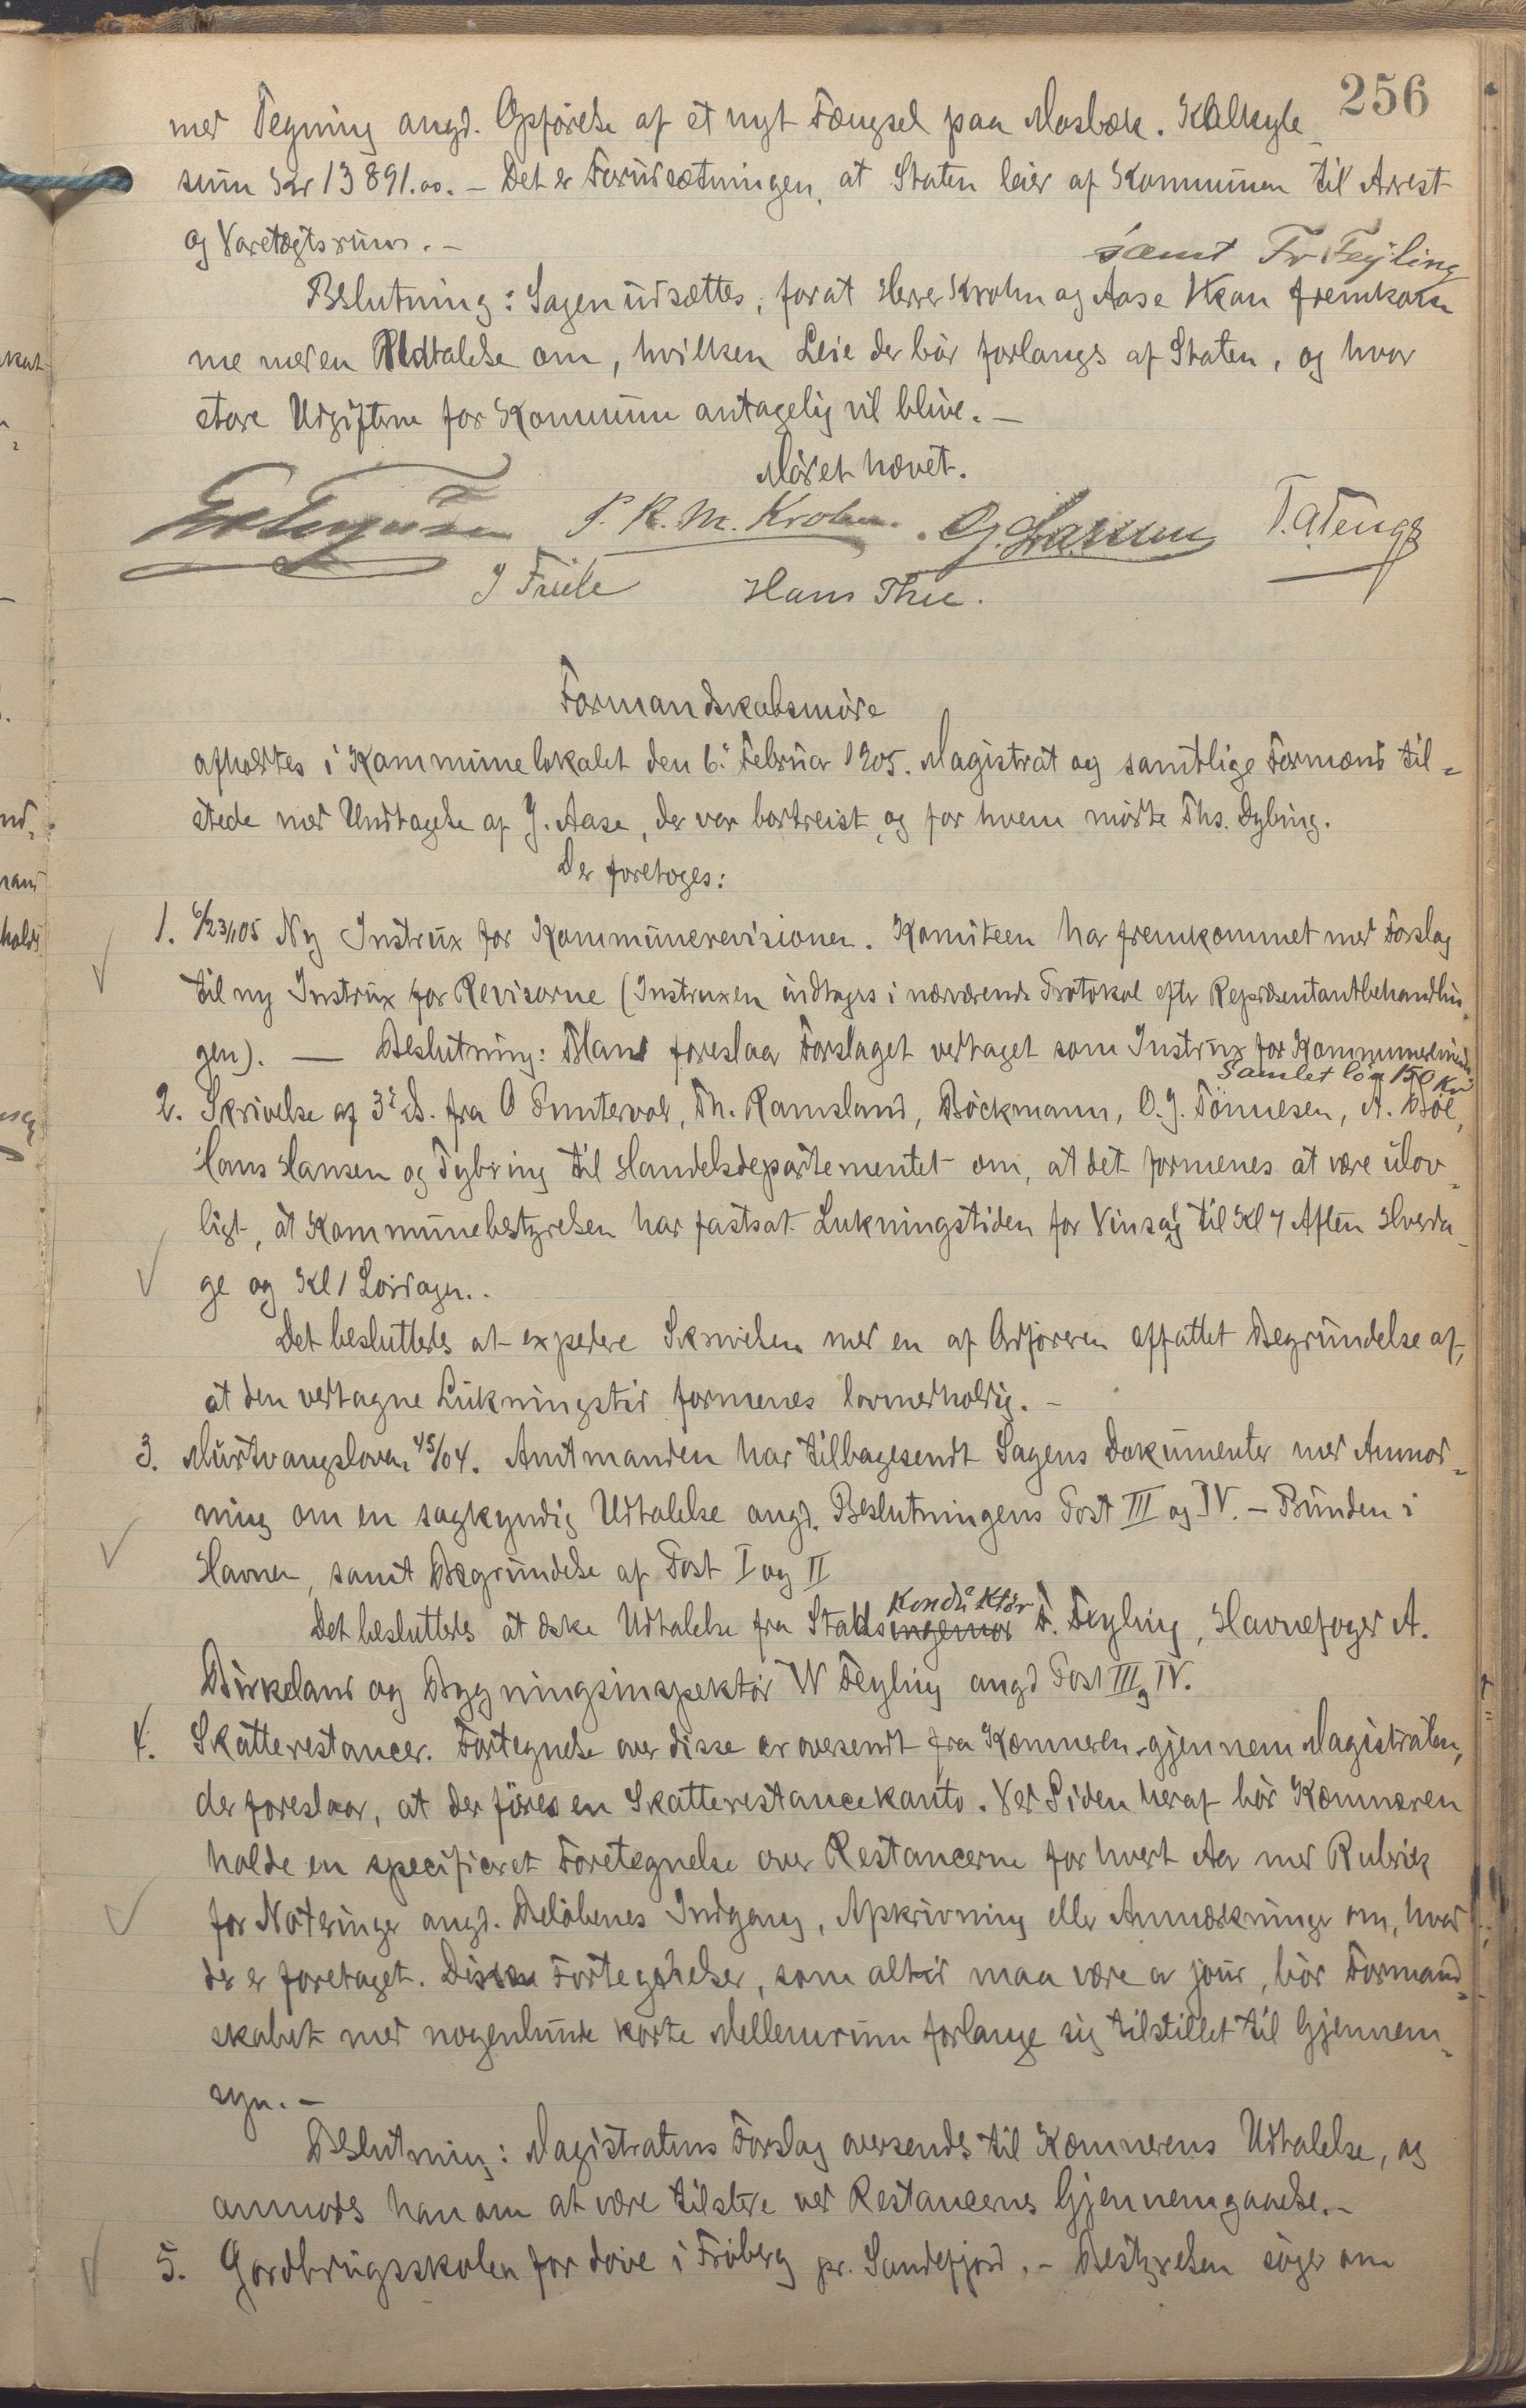 256
med Tegning angd. Opførelse af et nyt Fængsel paa Mosbæk. Kalkyle
sum Kr 13891.00. – Det er Forudsætningen, at Staten leier af Kommunen til Arrest
og Varetægtsrum. –
samt Fr Feyling
Beslutning: Sagen udsættes, forat Herrer Krohn og Aase kan fremkom
me med en Udtalelse om, hvilken Leie der bør forlanges af Staten, og hvor
store Udgifterne for Kommunen antagelig vil blive. –
Mødet hævet.
P. R. M. Krohn. O. J. Larsen T. A. Tengs
J Friele Hans Thu.
Formandskabsmøde
afholdtes i Kommunelokalet den 6. Februar 1905. Magistrat og samtlige Formænd til=
stede med Undtagelse af J. Aase, der var bortreist, og for hvem mødte Ths. Dybing.
Der foretoges:
1. 6/23/1 05 Ny Instrux for Kommunerevisionen. Komiteen har fremkommet med Forslag
til ny Instrux for Revisorne (Instruxen indtages i nærværende Protokol efter Repræsentantbehandlin
gen). — Beslutning: Man foreslaar Forslaget vedtaget som Instrux for Kommunerevisio
Samlet løn 150 Kr
2. Skrivelse af 3 ds. fra O Puntervold, Th. Ramsland, Böckmann, O. J. Tönnesen, A. Bøe,
Hans Hansen og Tybring til Handelsdepartementet om, at det formenes at være ulov=
ligt, at Kommunebestyrelsen har fastsat Lukningstiden for Vinsalg til Kl 7 Aften Hverda
ge og Kl 1 Lørdagen.
Det besluttedes at expedere Skrivelsen med en af Ordføreren affattet Begrundelse af,
at den vedtagne Lukningstid formenes lovmedholdig. –
3. Murtvangsloven 45/04. Amtmanden har tilbagesendt Sagens Dokumenter med Anmod=
ning om en sagkyndig Udtalelse angd. Beslutningens Post III og IV. – Bunden i
Havnen, samt Begrundelse af Post I og II
Konduktør
Det besluttedes at æske Udtalelse fra Stadsingeniør F. Feyling, Havnefoged A.
Birkeland og Bygningsinspektør W Feyling angd Post III og IV.
4. Skatterestancer. Fortegnelse over disse er oversendt fra Kæmneren gjennem Magistraten,
der foreslaar, at der føres en Skatterestancekonto. Ved Siden heraf bør Kæmneren
holde en specificeret Foretegnelse over Restancerne for hvert Aar med Rubrik
for Noteringer angd. Beløbenes Indgang, Afskrivning eller Anmærkninger om, hvad
der er foretaget. Disse Fortegnelser, som altid maa være a jour, bør Formand=
skabet med nogenlunde korte Mellemrum forlange sig tilstillet til Gjennem=
syn. –
Beslutning: Magistratens Forslag oversendes til Kæmnerens Udtalelse, og
anmodes han om at være tilstede ved Restancernes Gjennemgaaelse. –
5. Gardbrugsskolen for døve i Fröberg pr. Sandefjord. – Bestyrelsen søger om